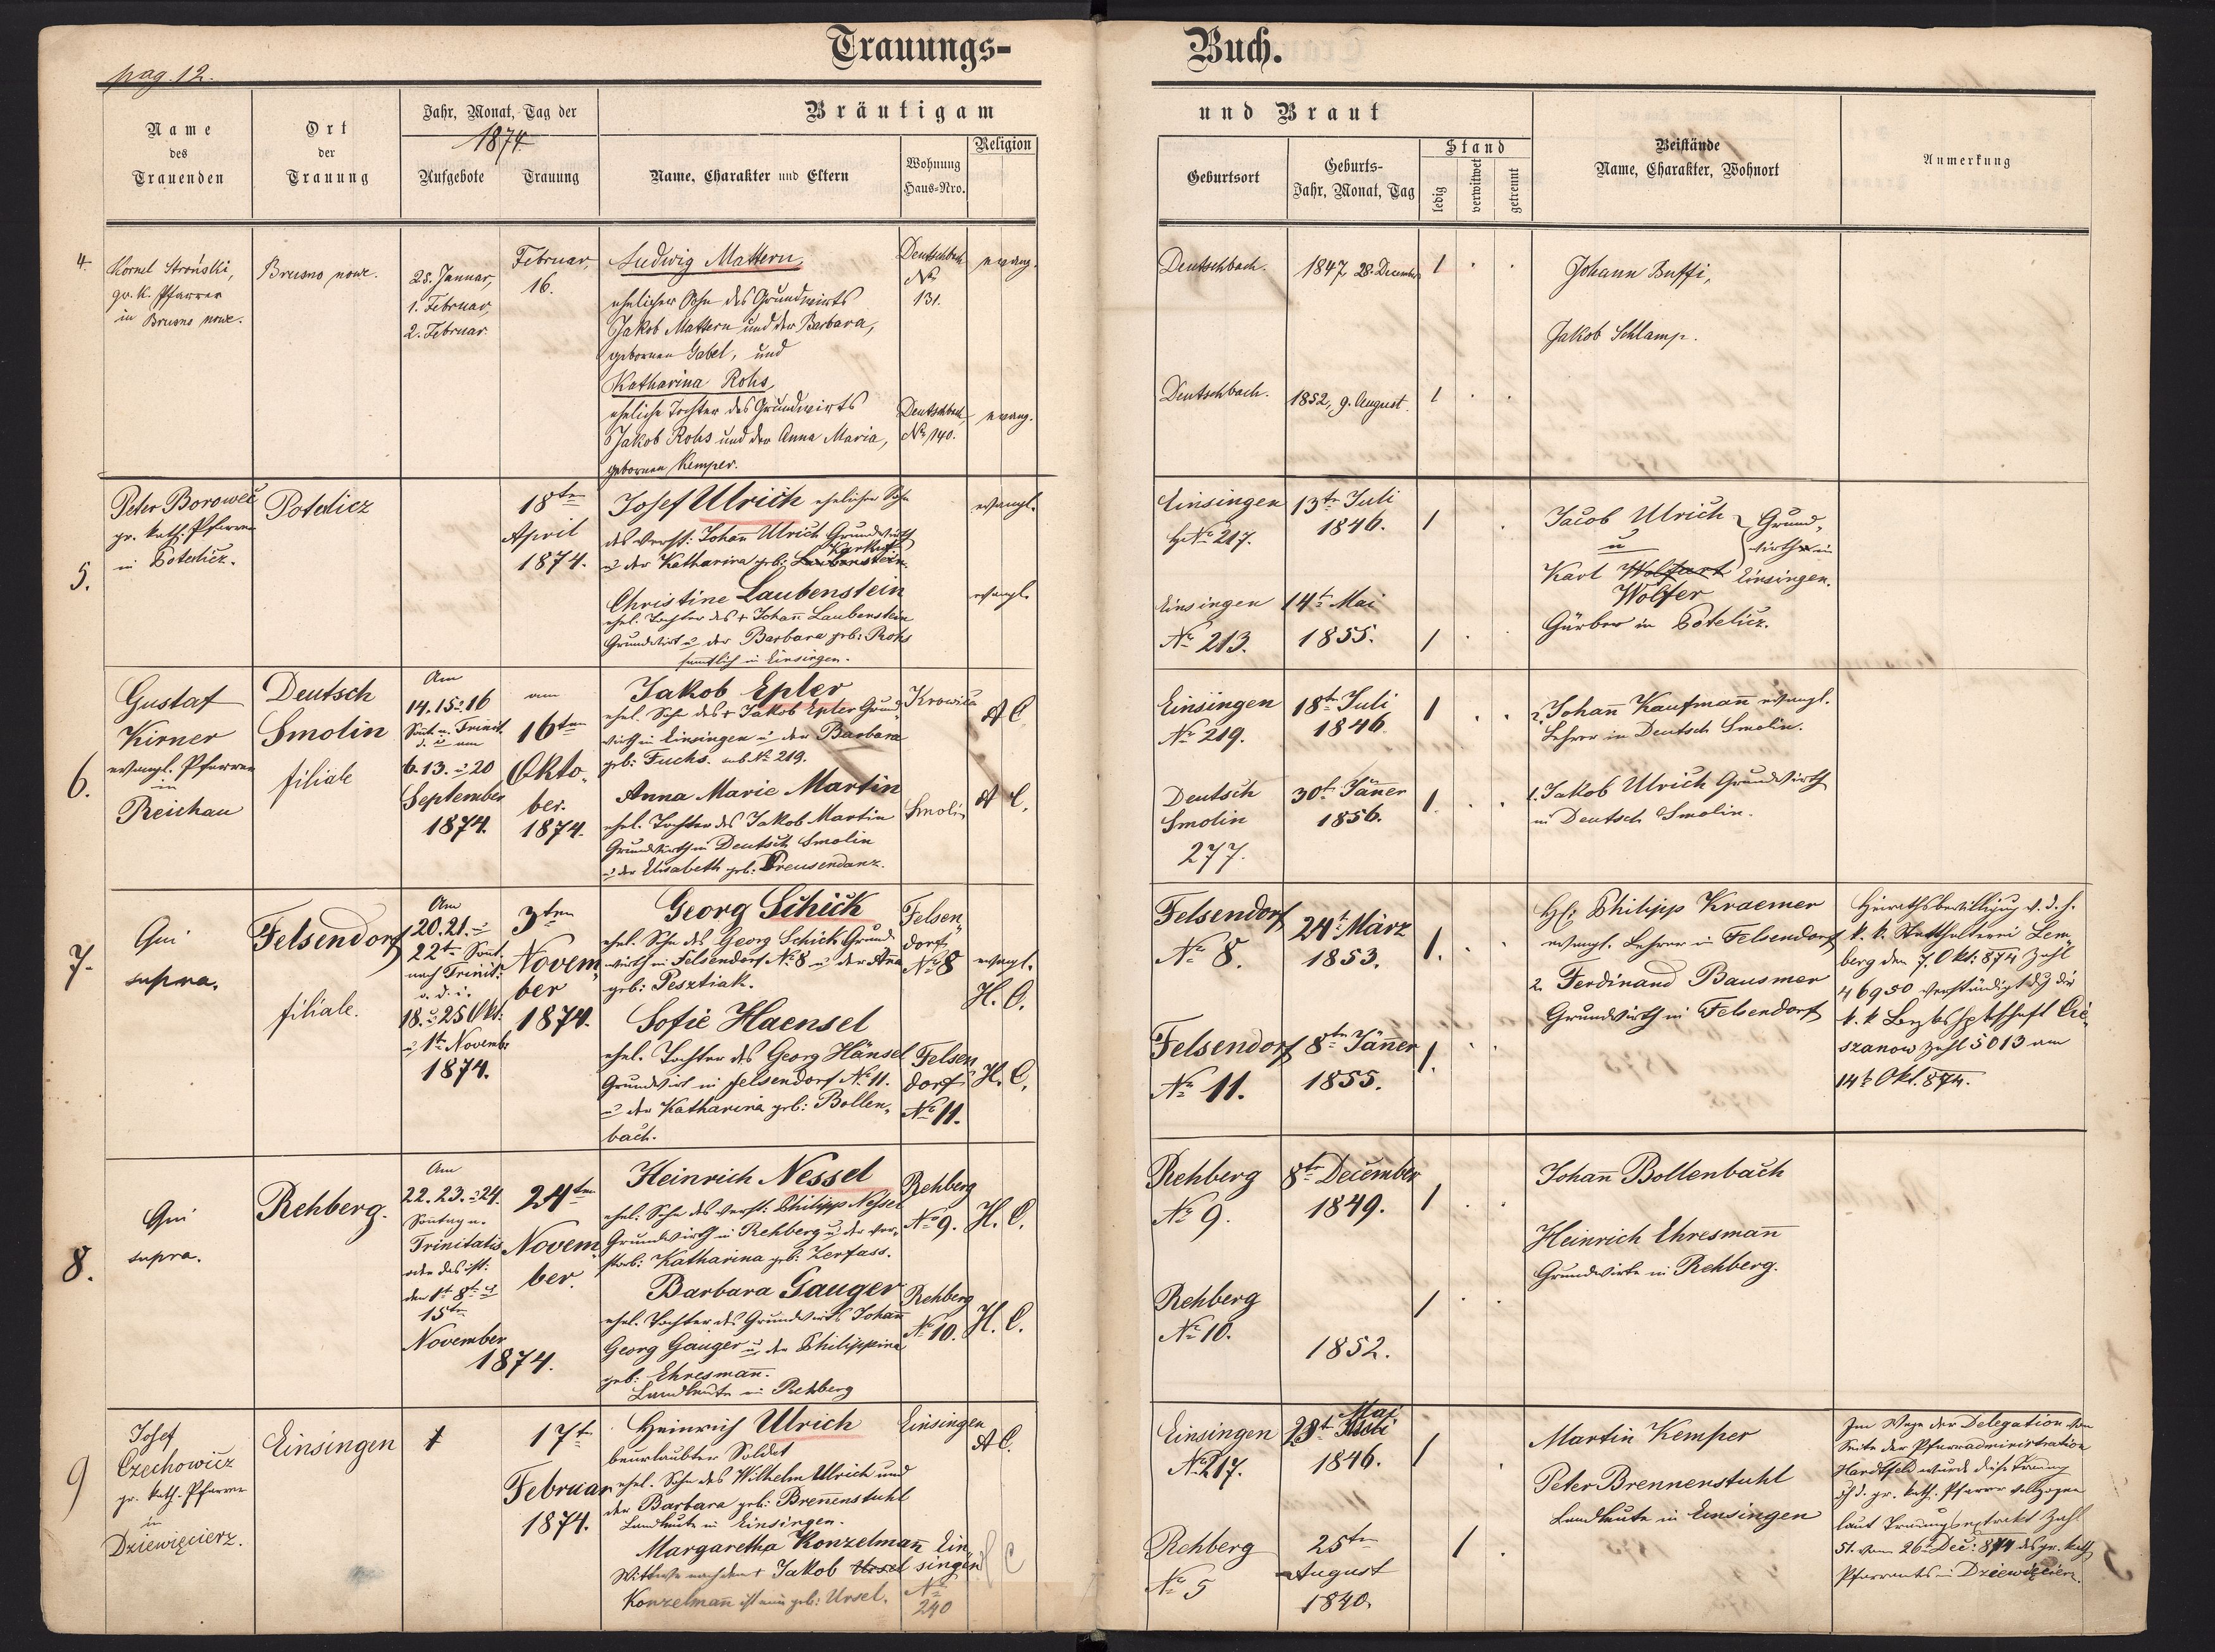 Trauungs-
Buch.
pag. 12.
Name
des
Trauenden
Ort
der
Trauung
Jahr, Monat, Tag der
1874
Aufgebote
Trauung
Bräutigam
Name, Charakter und Eltern
Wohnung
Haus-Nro.
Religion
und Braut
Geburtsort
Geburts-
Jahr, Monat, Tag
Stand
ledig
verwitwet
getrennt
Beistände
Name, Charakter, Wohnort
Anmerkung
4.
Kornel Stroński,
gr. k. Pfarrer
in Brusno nowe.
Brusno nowe.
25. Januar,
1. Februar,
2. Februar.
Februar,
16.
Ludwig Mattern,
ehelicher Sohn des Grundwirts
Jakob Mattern und der Barbara,
gebornen Gabel, und
Katharina Rohs,
eheliche Tochter des Grundwirts
Jakob Rohs und der Anna Maria,
gebornen Kemper.
Deutschbach
No
131.
evang.
Deutschbach,
No 140.
evang.
Deutschbach.
1847, 28. December
1 . .
Deutschbach.
1852, 9. August.
1 . .
Johann Buffi,
Jakob Schlamp.
5.
Peter Borowec
gr. kath. Pfarrer
in Potelicz.
Potelicz
18ten
April
1874.
Josef Ulrich ehelicher Sohn
des verst: Johañ Ulrich Grundwirth
u der Katharina geb: Laubenstein
Christine Laubenstein
ehel. Tochter des + Johañ Laubenstein
Grundwirt u der Barbara geb: Rohs
sämtlich in Einsingen.
evangl.
evangl.
Einsingen
No 217.
13te Juli
1846.
1 .
Einsingen
No 213.
14te Mai
1855.
1 . .
Jacob Ulrich
u
Karl Wolfart
Wolfer
Grund-
wirthe in
Einsingen.
Gärber in Potelicz.
6.
Gustaf
Kirner
evangl. Pfarrer
in
Reichau
Deutsch
Smolin
filiale
Am
14. 15 u 16
Sont. n. Trinit.
d. i. am
6. 13. u 20
September
1874.
am
16ten
Okto-
ber.
1874.
Jakob Epler
ehel. Sohn des + Jakob Epler Grund-
wirth in Einsingen u der Barbara
geb: Fuchs. sub No 219.
Anna Marie Martin
ehel. Tochter des Jakob Martin
Grundwirth in Deutsch Smolin
u der Elisabeth geb: Preusendanz.
Krowica
A C.
Smolin
A C.
Einsingen
No 219.
18te Juli
1846
1 . .
Deutsch
Smolin
277.
30te Jäner
1856.
1. . .
2. Johañ Kaufmañ evangl.
Lehrer in Deutsch Smolin.
1. Jakob Ulrich Grundwirth
in Deutsch Smolin.
7.
Qui
supra.
Felsendorf
filiale.
Am
20. 21. u
22te Sont.
nach Trinit:
d. i.
18. u 25 Okt:
u 1te Novemb.
1874.
3ten
Novem-
ber
1874.
Georg Schick
ehel. Sohn des Georg Schick Grund-
wirth in Felsendorf No 8 u der Aña
geb: Pesztiak.
Sofie Haensel
ehel. Tochter des Georg Hänsel
Grundwirt in Felsendorf No 11.
u der Katharina geb: Bollen-
bach.
Felsen-
dorf
No 8
evangl.
H. C.
Felsen-
dorf
No 11.
H. C.
Felsendorf
No 8.
24te März
1853.
1. . .
Felsendorf
No 11.
8te Jäner
1855.
1. . .
H: Philipp Kraemer
evangl. Lehrer in Felsendorf
2. Ferdinand Bausmer
Grundwirth in Felsendorf
Heirathsbewilligung v. d. h.
k. k. Statthalterei Lem-
berg den 7. Okt: 874 Zahl
46950 verständigt durch die
k. k. Bezkshptschaft Cie-
szanow Zahl 5013 am
14te Okt. 874.
8.
Qui
supra.
Rehberg.
Am
22. 23. u 24.
Sontag n.
Trinitatis
oder das ist:
den 1te 8te u
15te
November
1874.
24ten
Novem-
ber.
Heinrich Nessel
ehel. Sohn des verst: Philipp Nessel
Grundwirth in Rehberg u der ver-
storb: Katharina geb: Zerfass.
Barbara Gauger
ehel. Tochter des Grundwirts Johañ
Georg Gauger u der Philippina
geb: Ehresmañ.
Landleute in Rehberg
Rehberg
No 9.
H. C.
Rehberg
No 10.
H. C.
Rehberg
No 9.
8te December
1849.
1 . .
Rehberg
No 10.
1852.
1 . .
Johañ Bollenbach
Heinrich Ehresmañ
Grundwirte in Rehberg.
9
Josef
Czechowicz
gr. kath. Pfarrer
in
Dziewięcierz.
Einsingen
17te
Februar
1874.
Heinrich Ulrich
beurlaubter Soldat
ehel. Sohn des Wilhelm Ulrich und
der Barbara geb: Breñenstuhl
Landleute in Einsingen.
Margaretha Konzelmañ
Wittwe nach dem + Jakob Ursel
Konzelmañ ist ein geb: Ursel.
Einsingen
A C.
Ein-
singen
No
240
A C
Einsingen
No 217.
Mai
1846.
1 .
Rehberg
No 5
25te
August
1840.
1 .
Martin Kemper
Peter Brennenstuhl
Landleute in Einsingen
Im Wege der Delegation von
Seite der Pfarradministration
Hardtfeld wurde diese Trauung
d. d. gr. kath. Pfarrer vollzogen
laut Trauungsextrakt Zahl
51. vom 26te Dec: 874 des gr. kath
Pfarramts in Dziewięcierz.